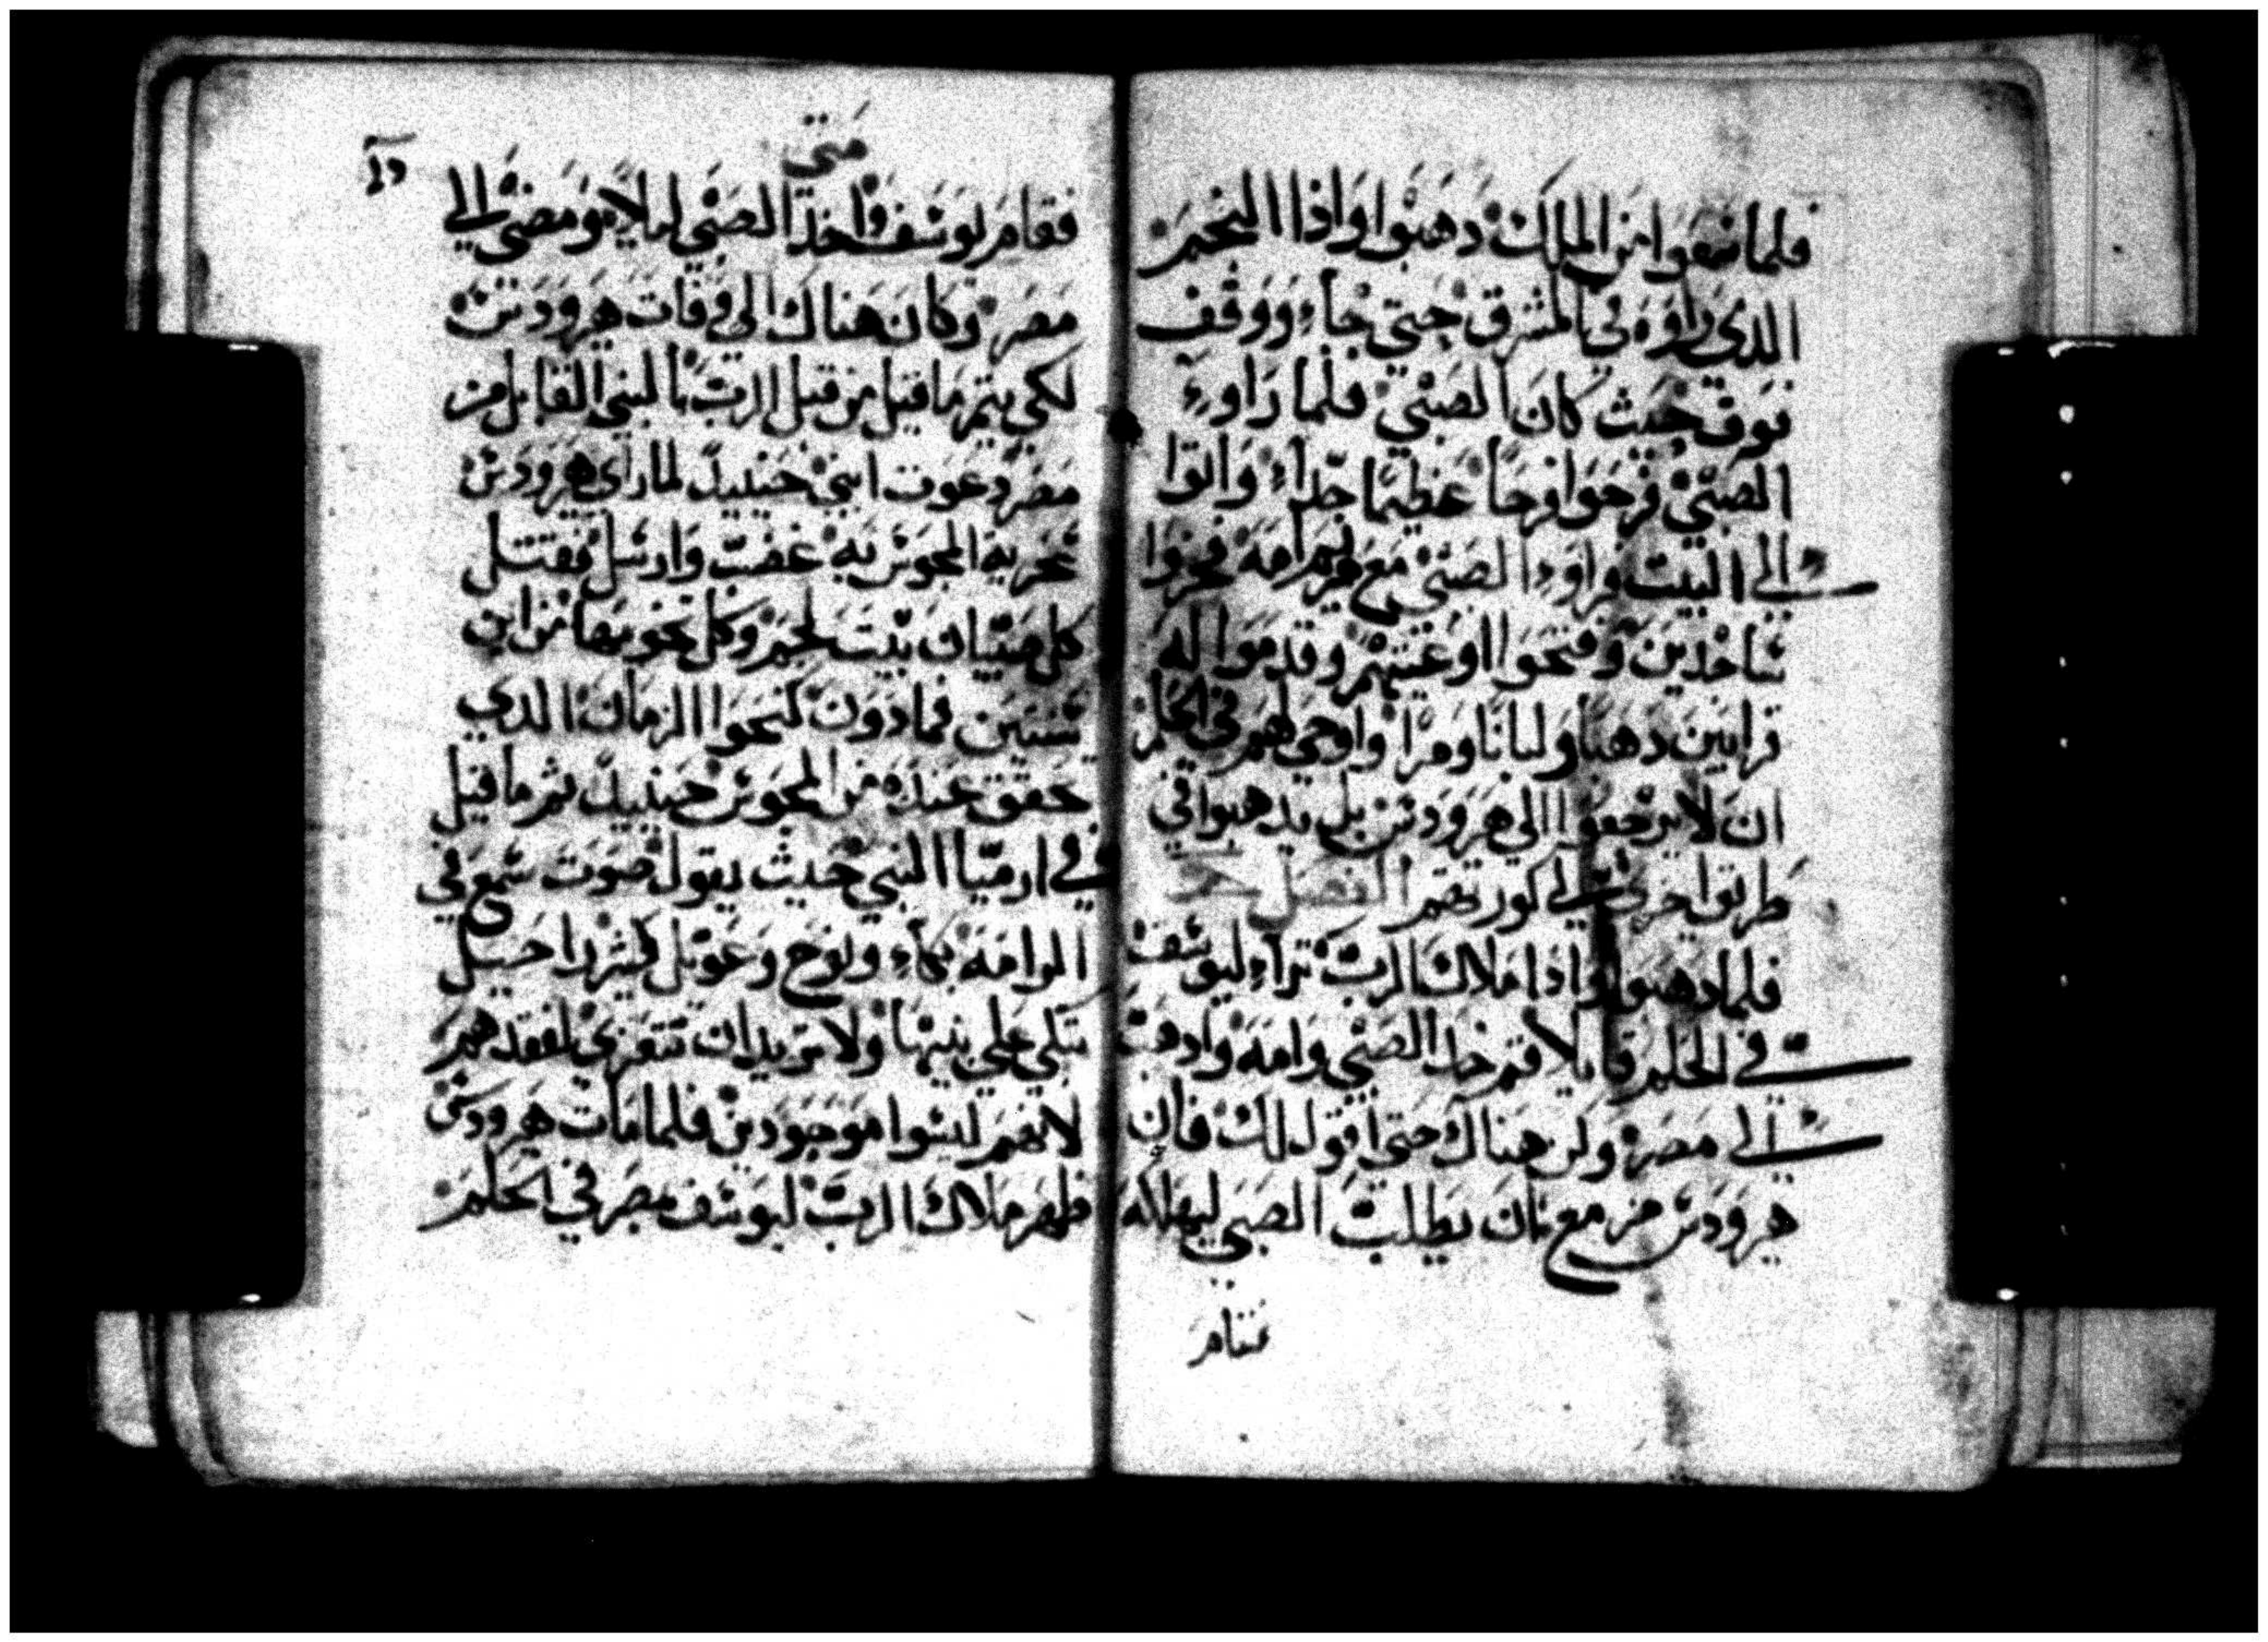 فلما سمعوا من الملك دهبوا واذا النجم
الدي راوه في المشرق حتي جاء ووقف
فوق حيث كان الصبي فلما راوء
الصبي فرحوا فرحا عظيما جدا واتوا
الي البيت فراوا الصبي مع مريم امه فخروا
ساجدين وفتحوا اوعيتهم وقدموا له
قرابين دهبا ولبانا ومرا واوحي لهم في الحلم
ان لا يرجعوا الي هرودس بل يدهبوا في
طريق اخري الي كورتهم الفصل
فلما دهبوا وادا ملاك الرب تراء ليوسف
في الحلم قايلا قم خد الصبي وامه وادهب
الي مصر وكن هناك حتي اقول لك فان
هرودس مزمع بان يطلب الصبي ليهلكه
فقام
متي
فقام يوسف واخذ الصبي ليلا ومضي الي
مصر وكان هناك الي وفات هرودس
لكي يتم ما قيل من قبل الرب بالنبي القايل من
مصر دعوت ابني حينيد لما راي هرودس
سخرية المجوس به غضب وارسل فقتل
كل صبيان بيت لحم وكل نخومها من ابن
سنتين فما دون كنحوا الزمان الدي
تحقق عنده من المجوس حينيد تم ما قيل
في ارميا النبي حيث يقول صوت سمع في
الرامه بكاء ونوح وعويل كثير راحيل
تبكي علي بنيها ولا تريد ان تتعزي لفقدهم
لانهم ليسوا موجودين فلما مات هرودس
ظهر ملاك الرب ليوسف بمصر في الحلم